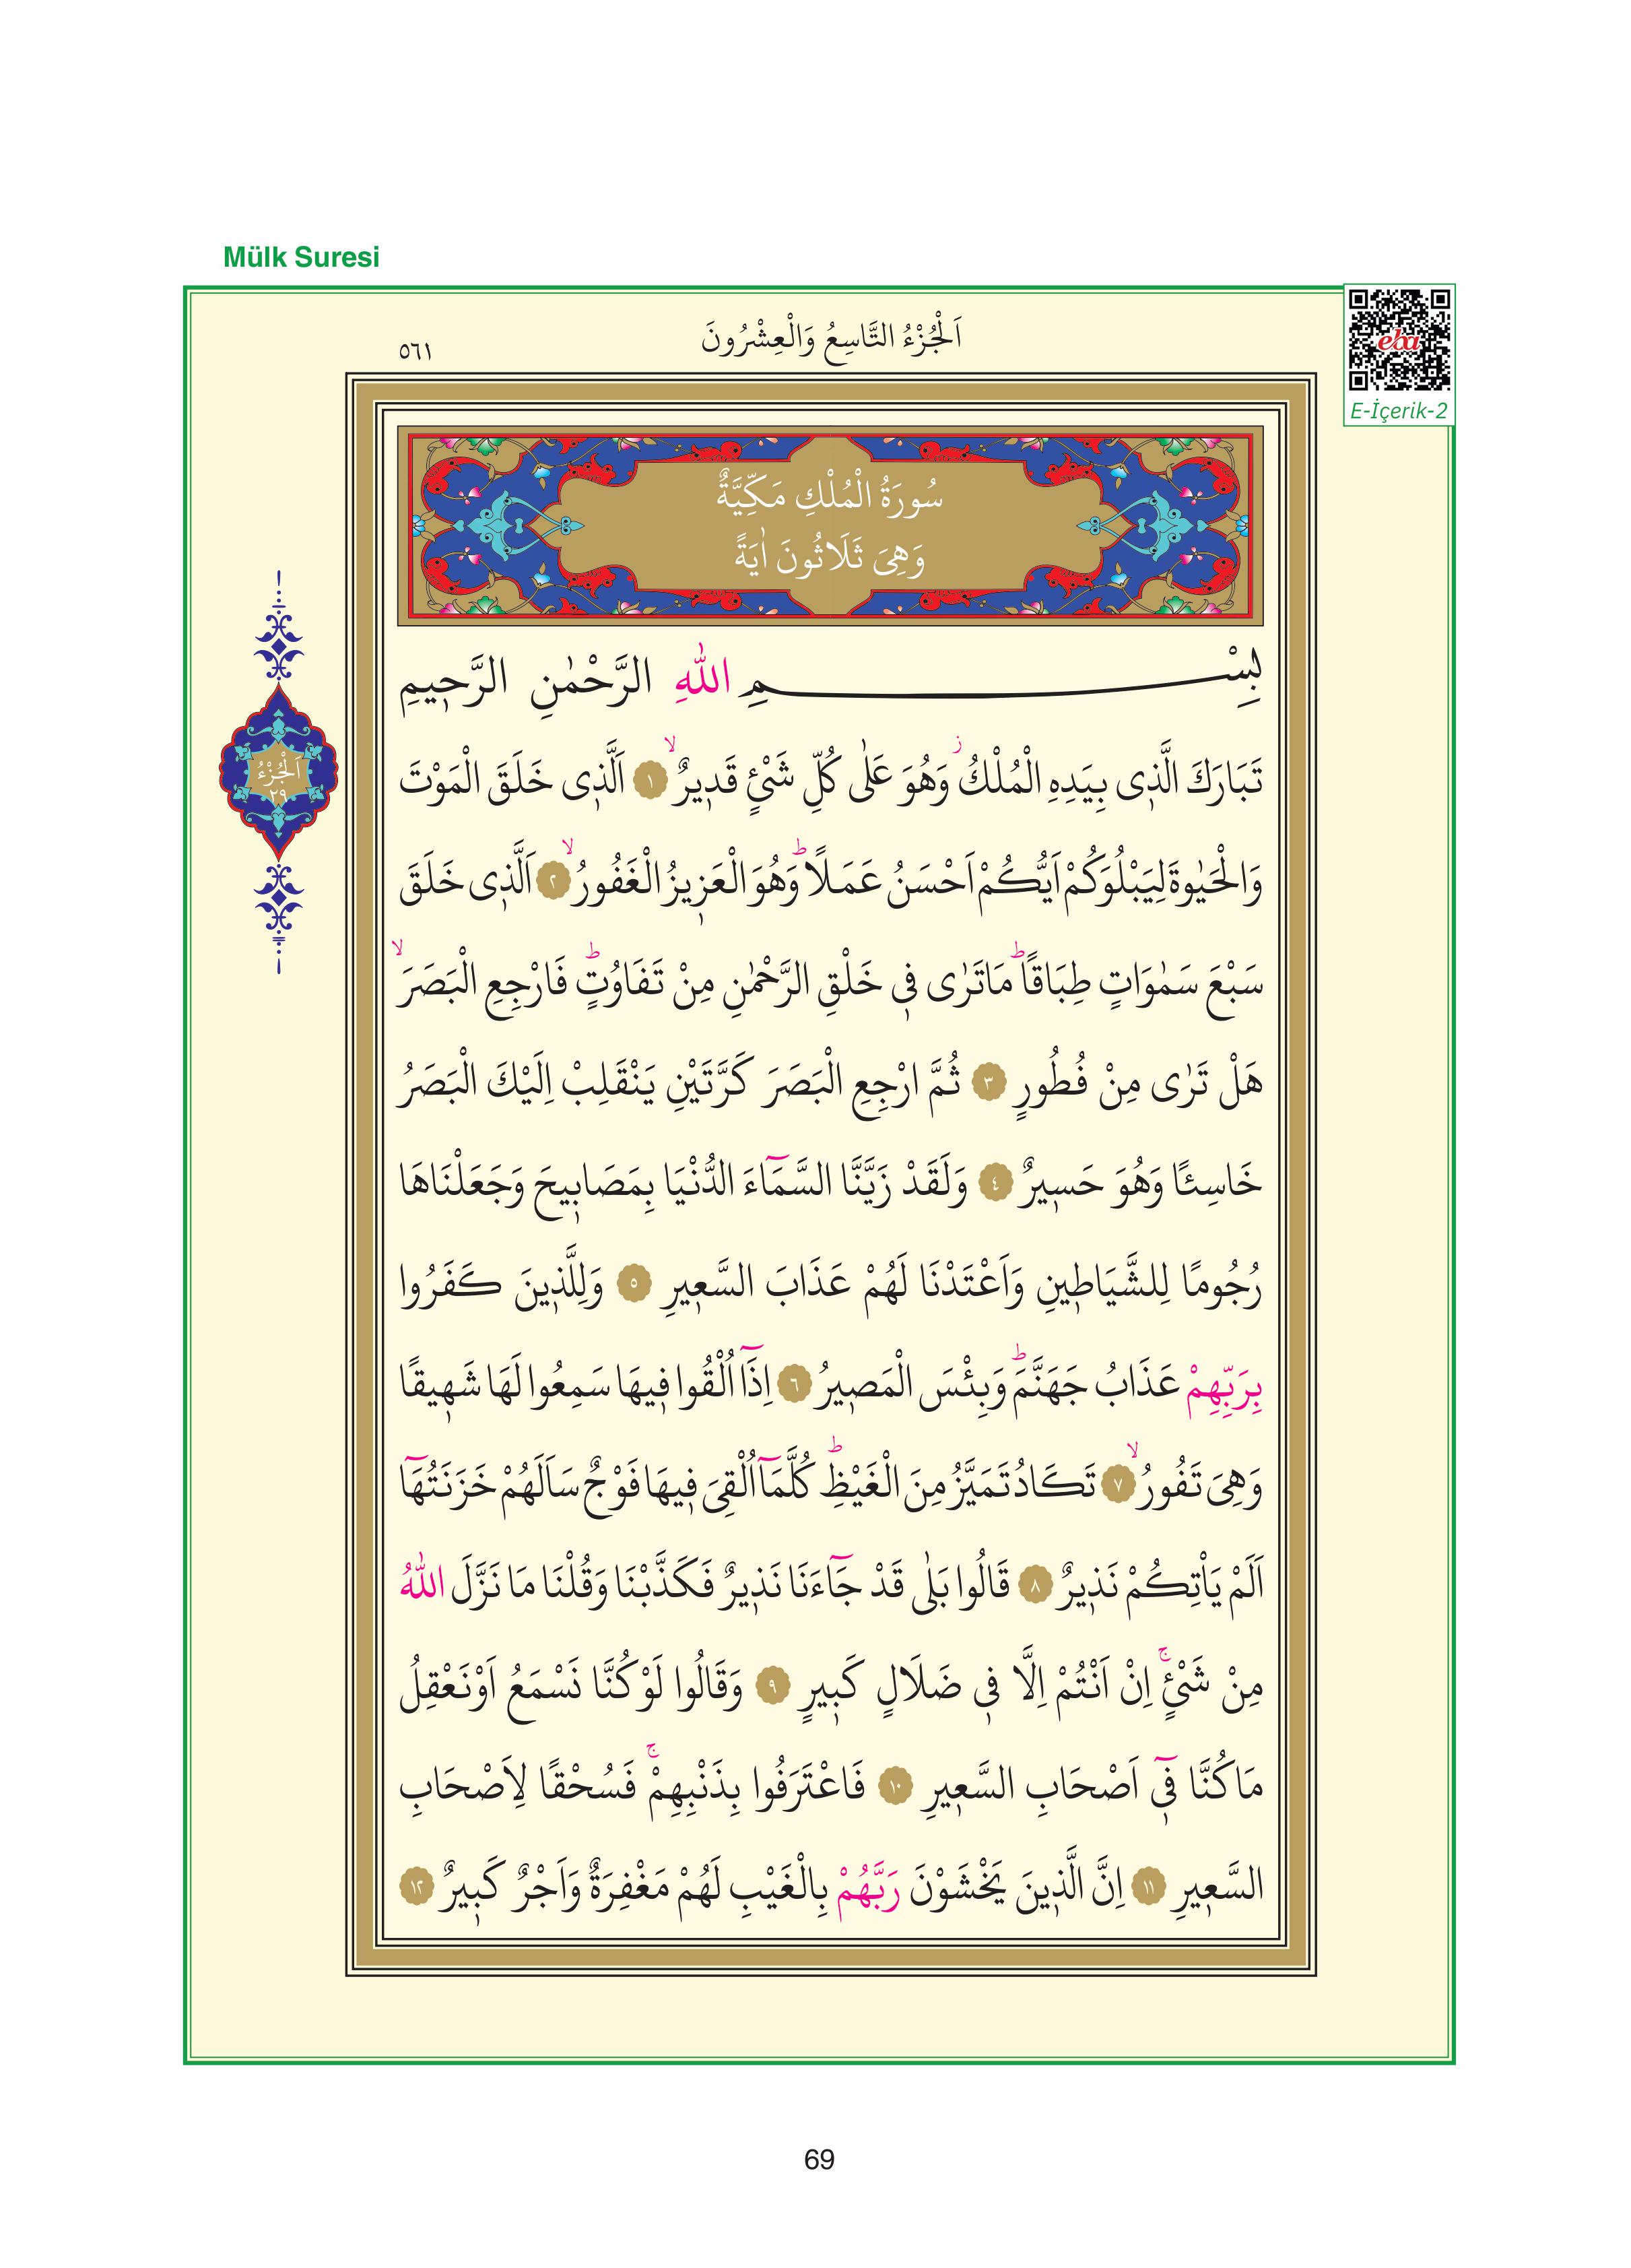 Mülk Suresi
اَلْجُزْءُ التَّاسِعُ وَالْعِشْرُونَ
٥٦١
eba
E-İçerik-2
سُورَةُ الْمُلْكِ مَكِّيَّةٌ
وَهِيَ ثَلَاثُونَ اٰيَةً
بِسْمِ اللّٰهِ الرَّحْمٰنِ الرَّح۪يمِ
تَبَارَكَ الَّذ۪ى بِيَدِهِ الْمُلْكُۘ وَهُوَ عَلٰى كُلِّ شَيْئٍ قَد۪يرٌۙ ﴿١﴾ اَلَّذ۪ى خَلَقَ الْمَوْتَ
وَالْحَيٰوةَ لِيَبْلُوَكُمْ اَيُّكُمْ اَحْسَنُ عَمَلًاۜ وَهُوَ الْعَز۪يزُ الْغَفُورُۙ ﴿٢﴾ اَلَّذ۪ى خَلَقَ
سَبْعَ سَمٰوَاتٍ طِبَاقًاۜ مَاتَرٰى ف۪ى خَلْقِ الرَّحْمٰنِ مِنْ تَفَاوُتٍۜ فَارْجِعِ الْبَصَرَۙ
هَلْ تَرٰى مِنْ فُطُورٍ ﴿٣﴾ ثُمَّ ارْجِعِ الْبَصَرَ كَرَّتَيْنِ يَنْقَلِبْ اِلَيْكَ الْبَصَرُ
خَاسِئًا وَهُوَ حَس۪يرٌ ﴿٤﴾ وَلَقَدْ زَيَّنَّا السَّمَٓاءَ الدُّنْيَا بِمَصَاب۪يحَ وَجَعَلْنَاهَا
رُجُومًا لِلشَّيَاط۪ينِ وَاَعْتَدْنَا لَهُمْ عَذَابَ السَّع۪يرِ ﴿٥﴾ وَلِلَّذ۪ينَ كَفَرُوا
بِرَبِّهِمْ عَذَابُ جَهَنَّمَۜ وَبِئْسَ الْمَص۪يرُ ﴿٦﴾ اِذَٓا اُلْقُوا ف۪يهَا سَمِعُوا لَهَا شَه۪يقًا
وَهِىَ تَفُورُۙ ﴿٧﴾ تَكَادُ تَمَيَّزُ مِنَ الْغَيْظِۜ كُلَّمَٓا اُلْقِىَ ف۪يهَا فَوْجٌ سَاَلَهُمْ خَزَنَتُهَٓا
اَلَمْ يَاْتِكُمْ نَذ۪يرٌ ﴿٨﴾ قَالُوا بَلٰى قَدْ جَٓاءَنَا نَذ۪يرٌ فَكَذَّبْنَا وَقُلْنَا مَا نَزَّلَ اللّٰهُ
مِنْ شَيْئٍۚ اِنْ اَنْتُمْ اِلَّا ف۪ى ضَلَالٍ كَب۪يرٍ ﴿٩﴾ وَقَالُوا لَوْ كُنَّا نَسْمَعُ اَوْ نَعْقِلُ
مَاكُنَّا ف۪ٓى اَصْحَابِ السَّع۪يرِ ﴿١٠﴾ فَاعْتَرَفُوا بِذَنْبِهِمْۚ فَسُحْقًا لِاَصْحَابِ
السَّع۪يرِ ﴿١١﴾ اِنَّ الَّذ۪ينَ يَخْشَوْنَ رَبَّهُمْ بِالْغَيْبِ لَهُمْ مَغْفِرَةٌ وَاَجْرٌ كَب۪يرٌ ﴿١٢﴾
اَلْجُزْءُ
٢٩
69